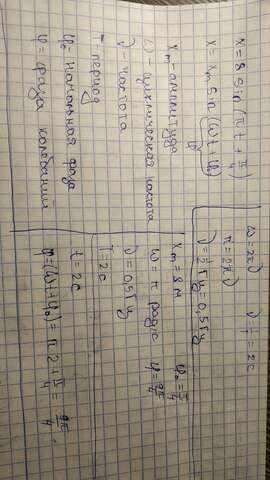 x = 8 sin (πt + π/4)
x = xm sin (ωt + φ₀)
φ
xm - амплитуда
ω - циклическая частота
ν - частота
T - период
φ₀ начальная фаза
φ = фаза колебаний
ω = 2πν
π = 2πν
ν = 1/2 Гц = 0,5 Гц
= 2с
xm = 8 м
φ₀ = π/4
ω = π рад/с
φ = 9π/4
ν = 0,5 Гц
T = 2с
t = 2с
φ = (ωt + φ₀) = π 2 + π/4 = 9π/4.